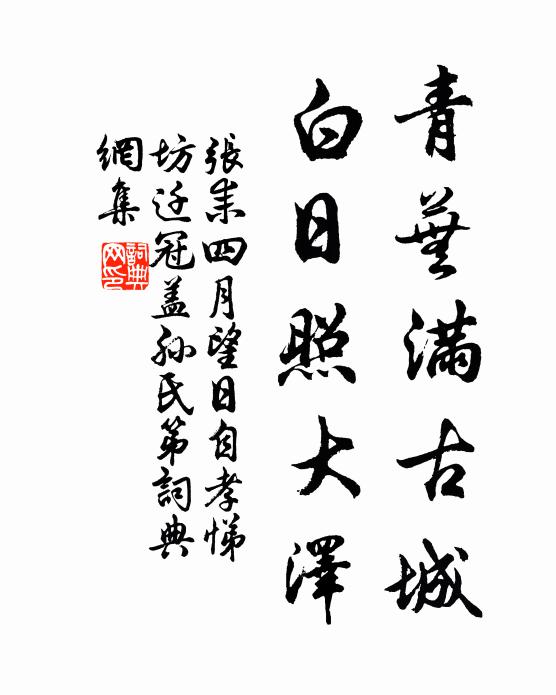 青蕪滿古城
白日照大澤
張耒四月望日自孝悌
坊迁冠盖孙氏第詞典
網集
詞典網印